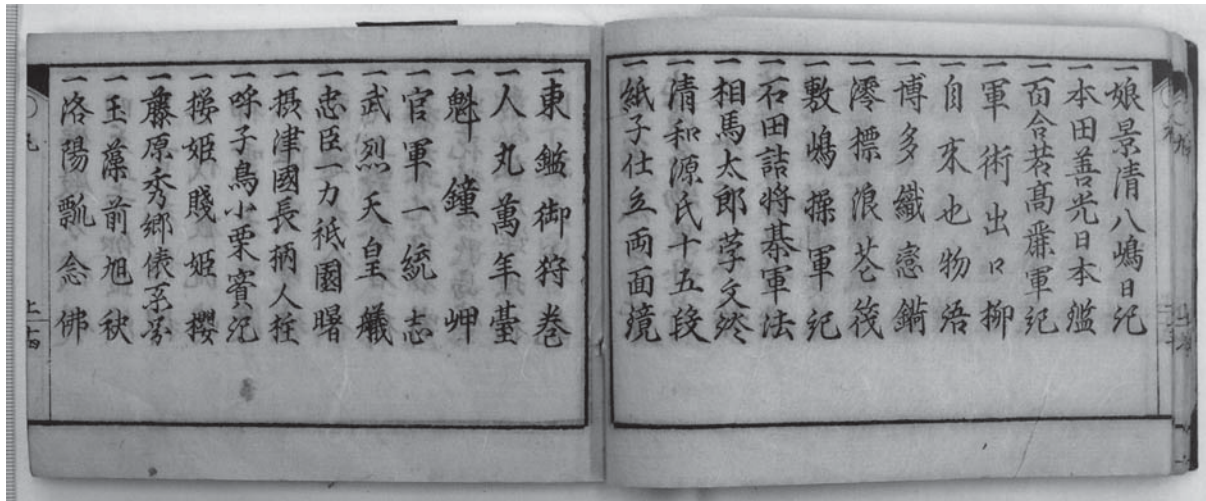 一娘景清八嶋日記
一本田善光日本鑑
一百合若高麗軍記
一軍術出口柳
一自来也物語
一博多織戀鋦
一澪標浪花筏
一敷嶋操軍記
一石田詰将棊軍法
一相馬太郎孛文談
一清和源氏十五段
一紙子仕立両面鏡
一東鑑御狩巻
一人丸萬年臺
一魁鐘岬
一官軍一統志
一武烈天皇艤
一忠臣一力祇園曙
一摂津國長柄人柱
一呼子鳥小栗實記
一姫賤姫櫻
一藤原秀郷俵系圖
一玉藻前旭袂
一洛陽瓢念佛
上ノ十四